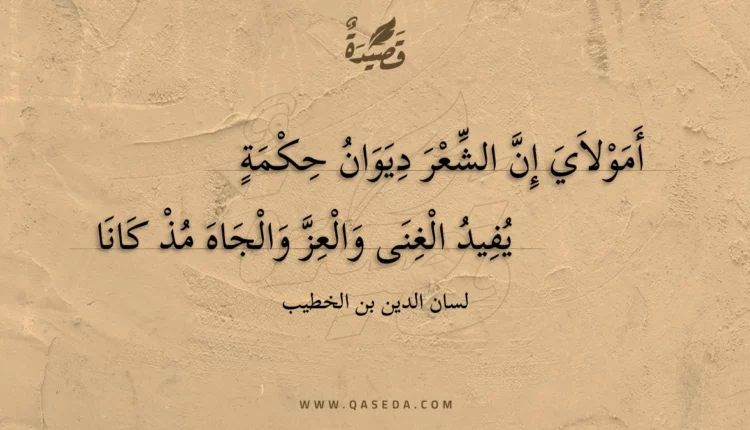 قَصِيدَةٌ
أَمَوْلاَيَ إِنَّ الشِّعْرَ دِيَوَانُ حِكْمَةٍ
يُفِيدُ الْغِنَى وَالْعِزَّ وَالْجَاهَ مُذْ كَانَا
لسان الدين بن الخطيب
WWW.QASEDA.COM